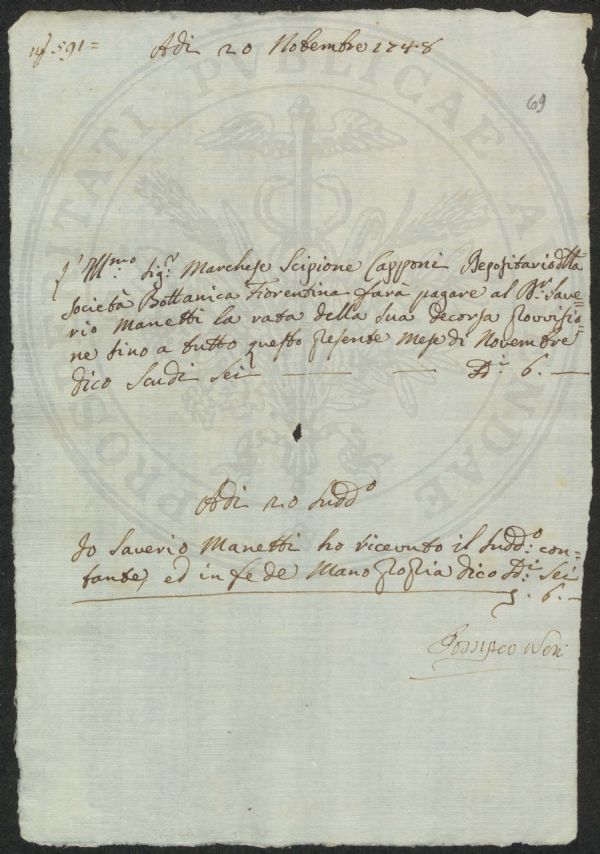 591=
Adi 20 Novembre 1748
69
Ill:mo Sig:r Marchese Scipione Capponi Depositario della
Società Bottanica Fiorentina farà pagare al D:r Save=
rio Manetti la rata della sua decorsa provvisio=
ne sino a tutto questo presente Mese di Novembre
dico Scudi Sei — — 6. —
Adi 20 Sudd:o
Io Saverio Manetti ho ricevuto il Sudd:o con=
tante, ed in fede Mano propria dico Sei
6. —
PROSPERITATI PUBLICAE AUGENDAE